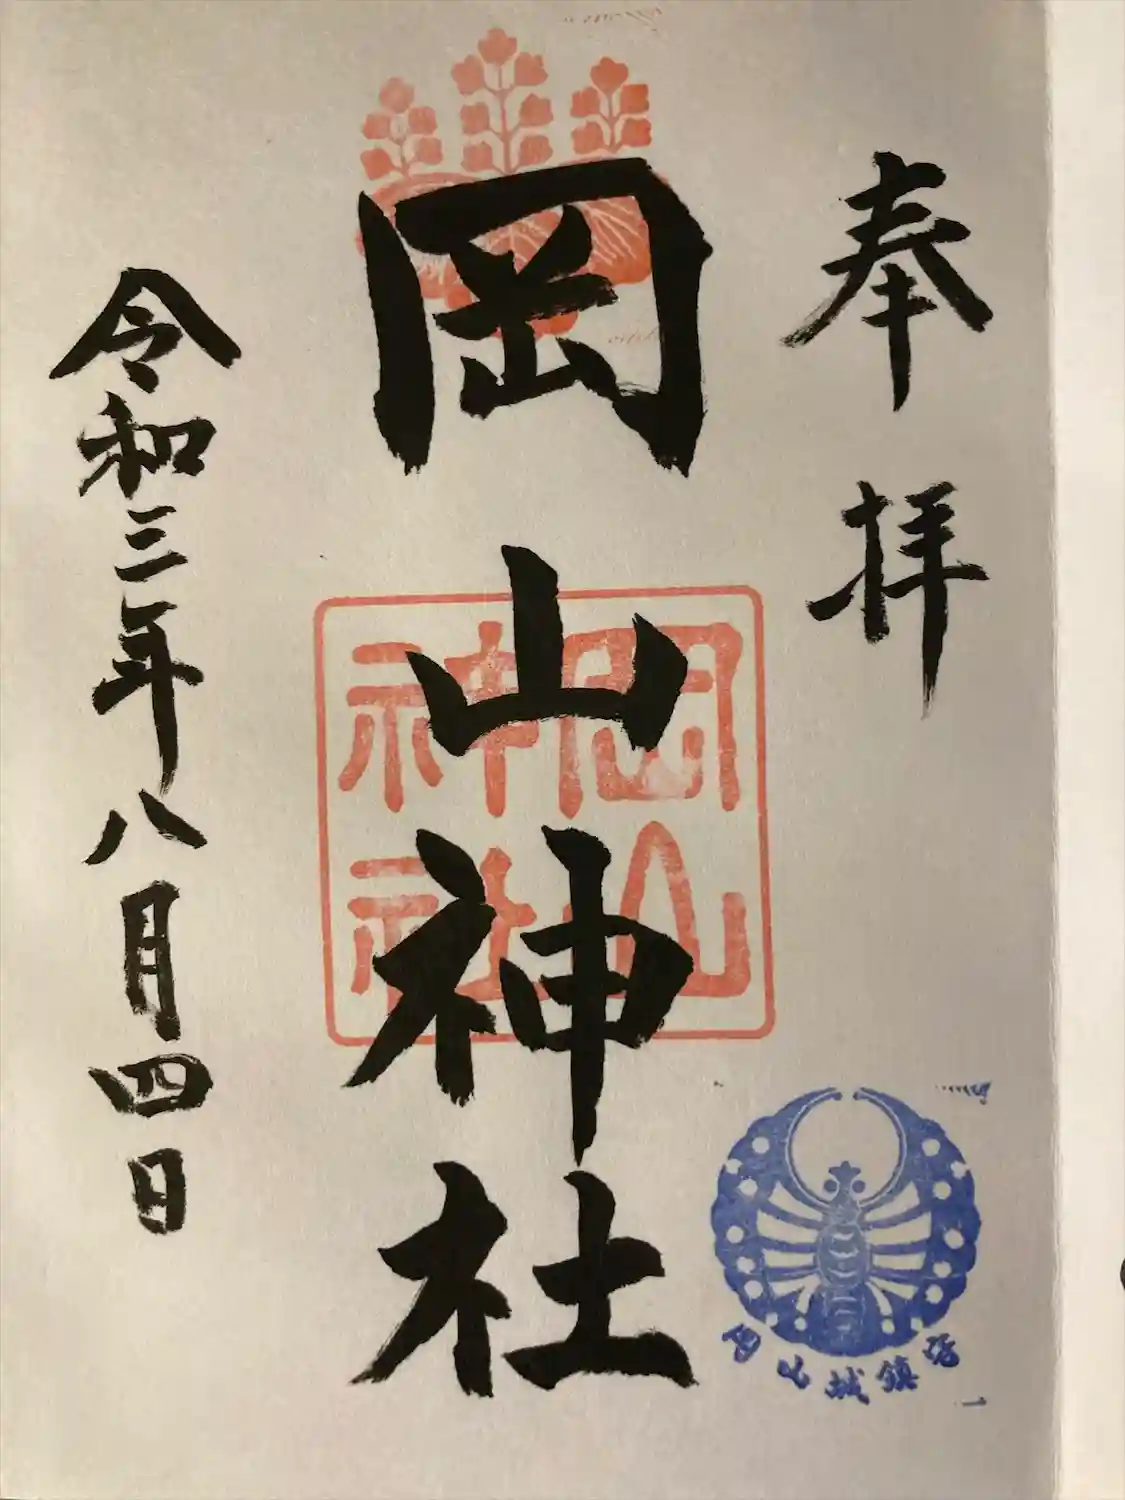 奉拝
岡山神社
岡山神社
令和三年八月四日
岡山城鎮守